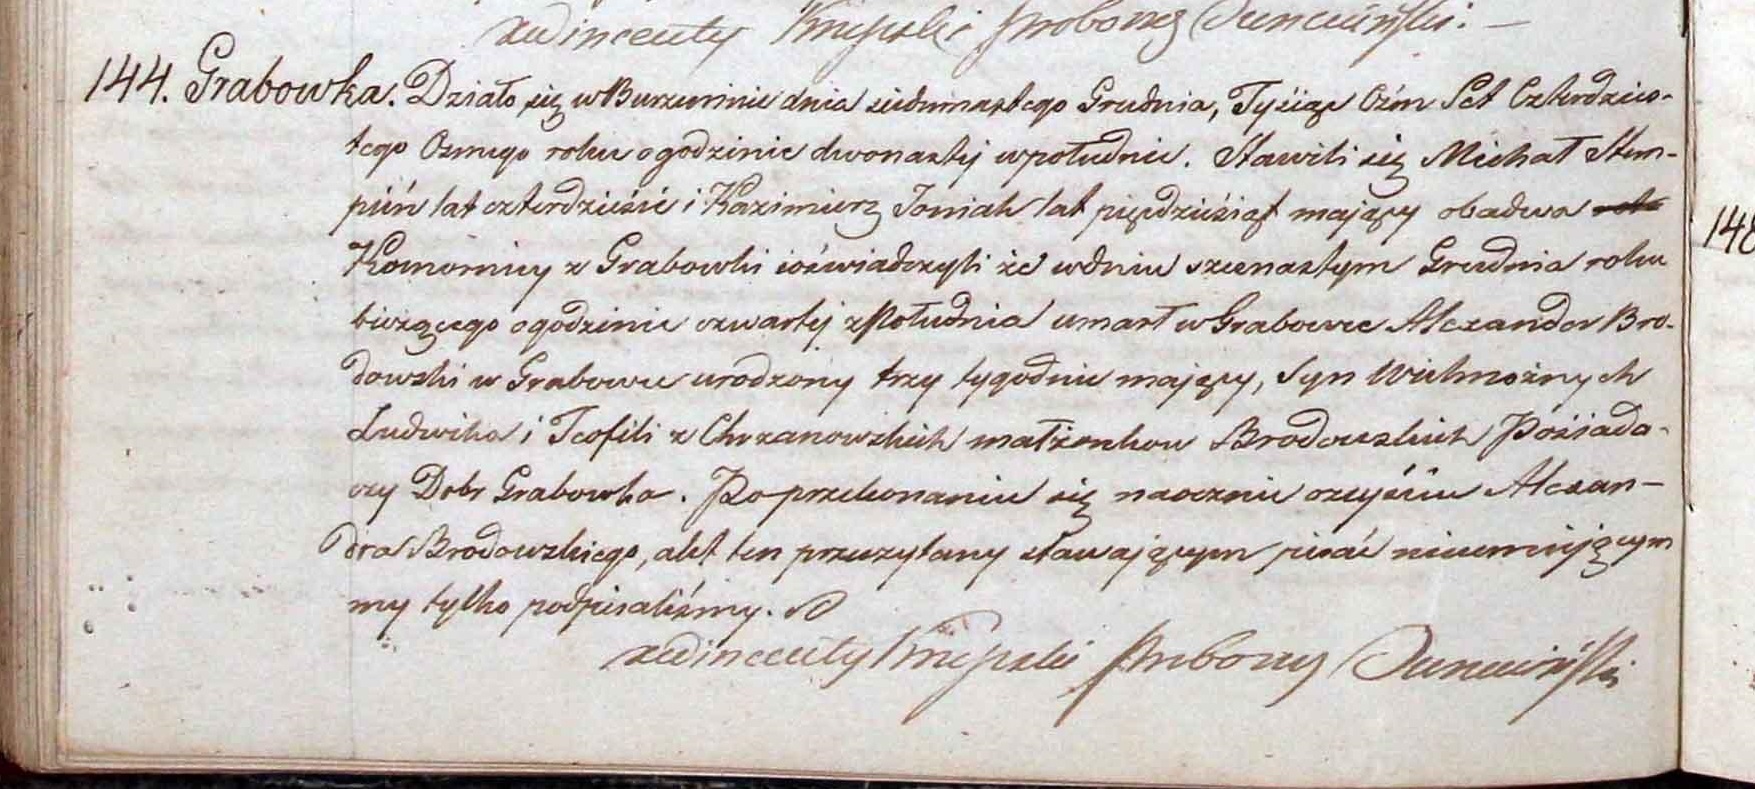 xWincenty Knyszki Proboszcz
144. Grabowka. Działo się w Burzeninie dnia siedmnastego Grudnia, Tysiąc Ośm Set Czterdzies-
tego Osmego roku o godzinie dwonastej w południe. Stawili się Michał Stem-
pień lat czterdzieście i Kazimierz Joniak lat pięćdziesiąt mający obadwa
Komornicy z Grabowki i oświadczyli że w dniu szesnastym Grudnia roku
bieżącego o godzinie czwartej z Południa umarł w Grabowce Alexander Bro-
dowski w Grabowce urodzony trzy tygodnie mający, Syn Wielmożnych
Ludwika i Teofili z Chrzanowskich małżonkow Brodowskich Posiada-
czy Dobr Grabowka. Po przekonaniu się naocznie o zejściu Alexan-
dra Brodowskiego, akt ten przeczytany stawającym pisać nieumiejącym
my tylko podpisaliśmy.
xWincenty Proboszcz
148